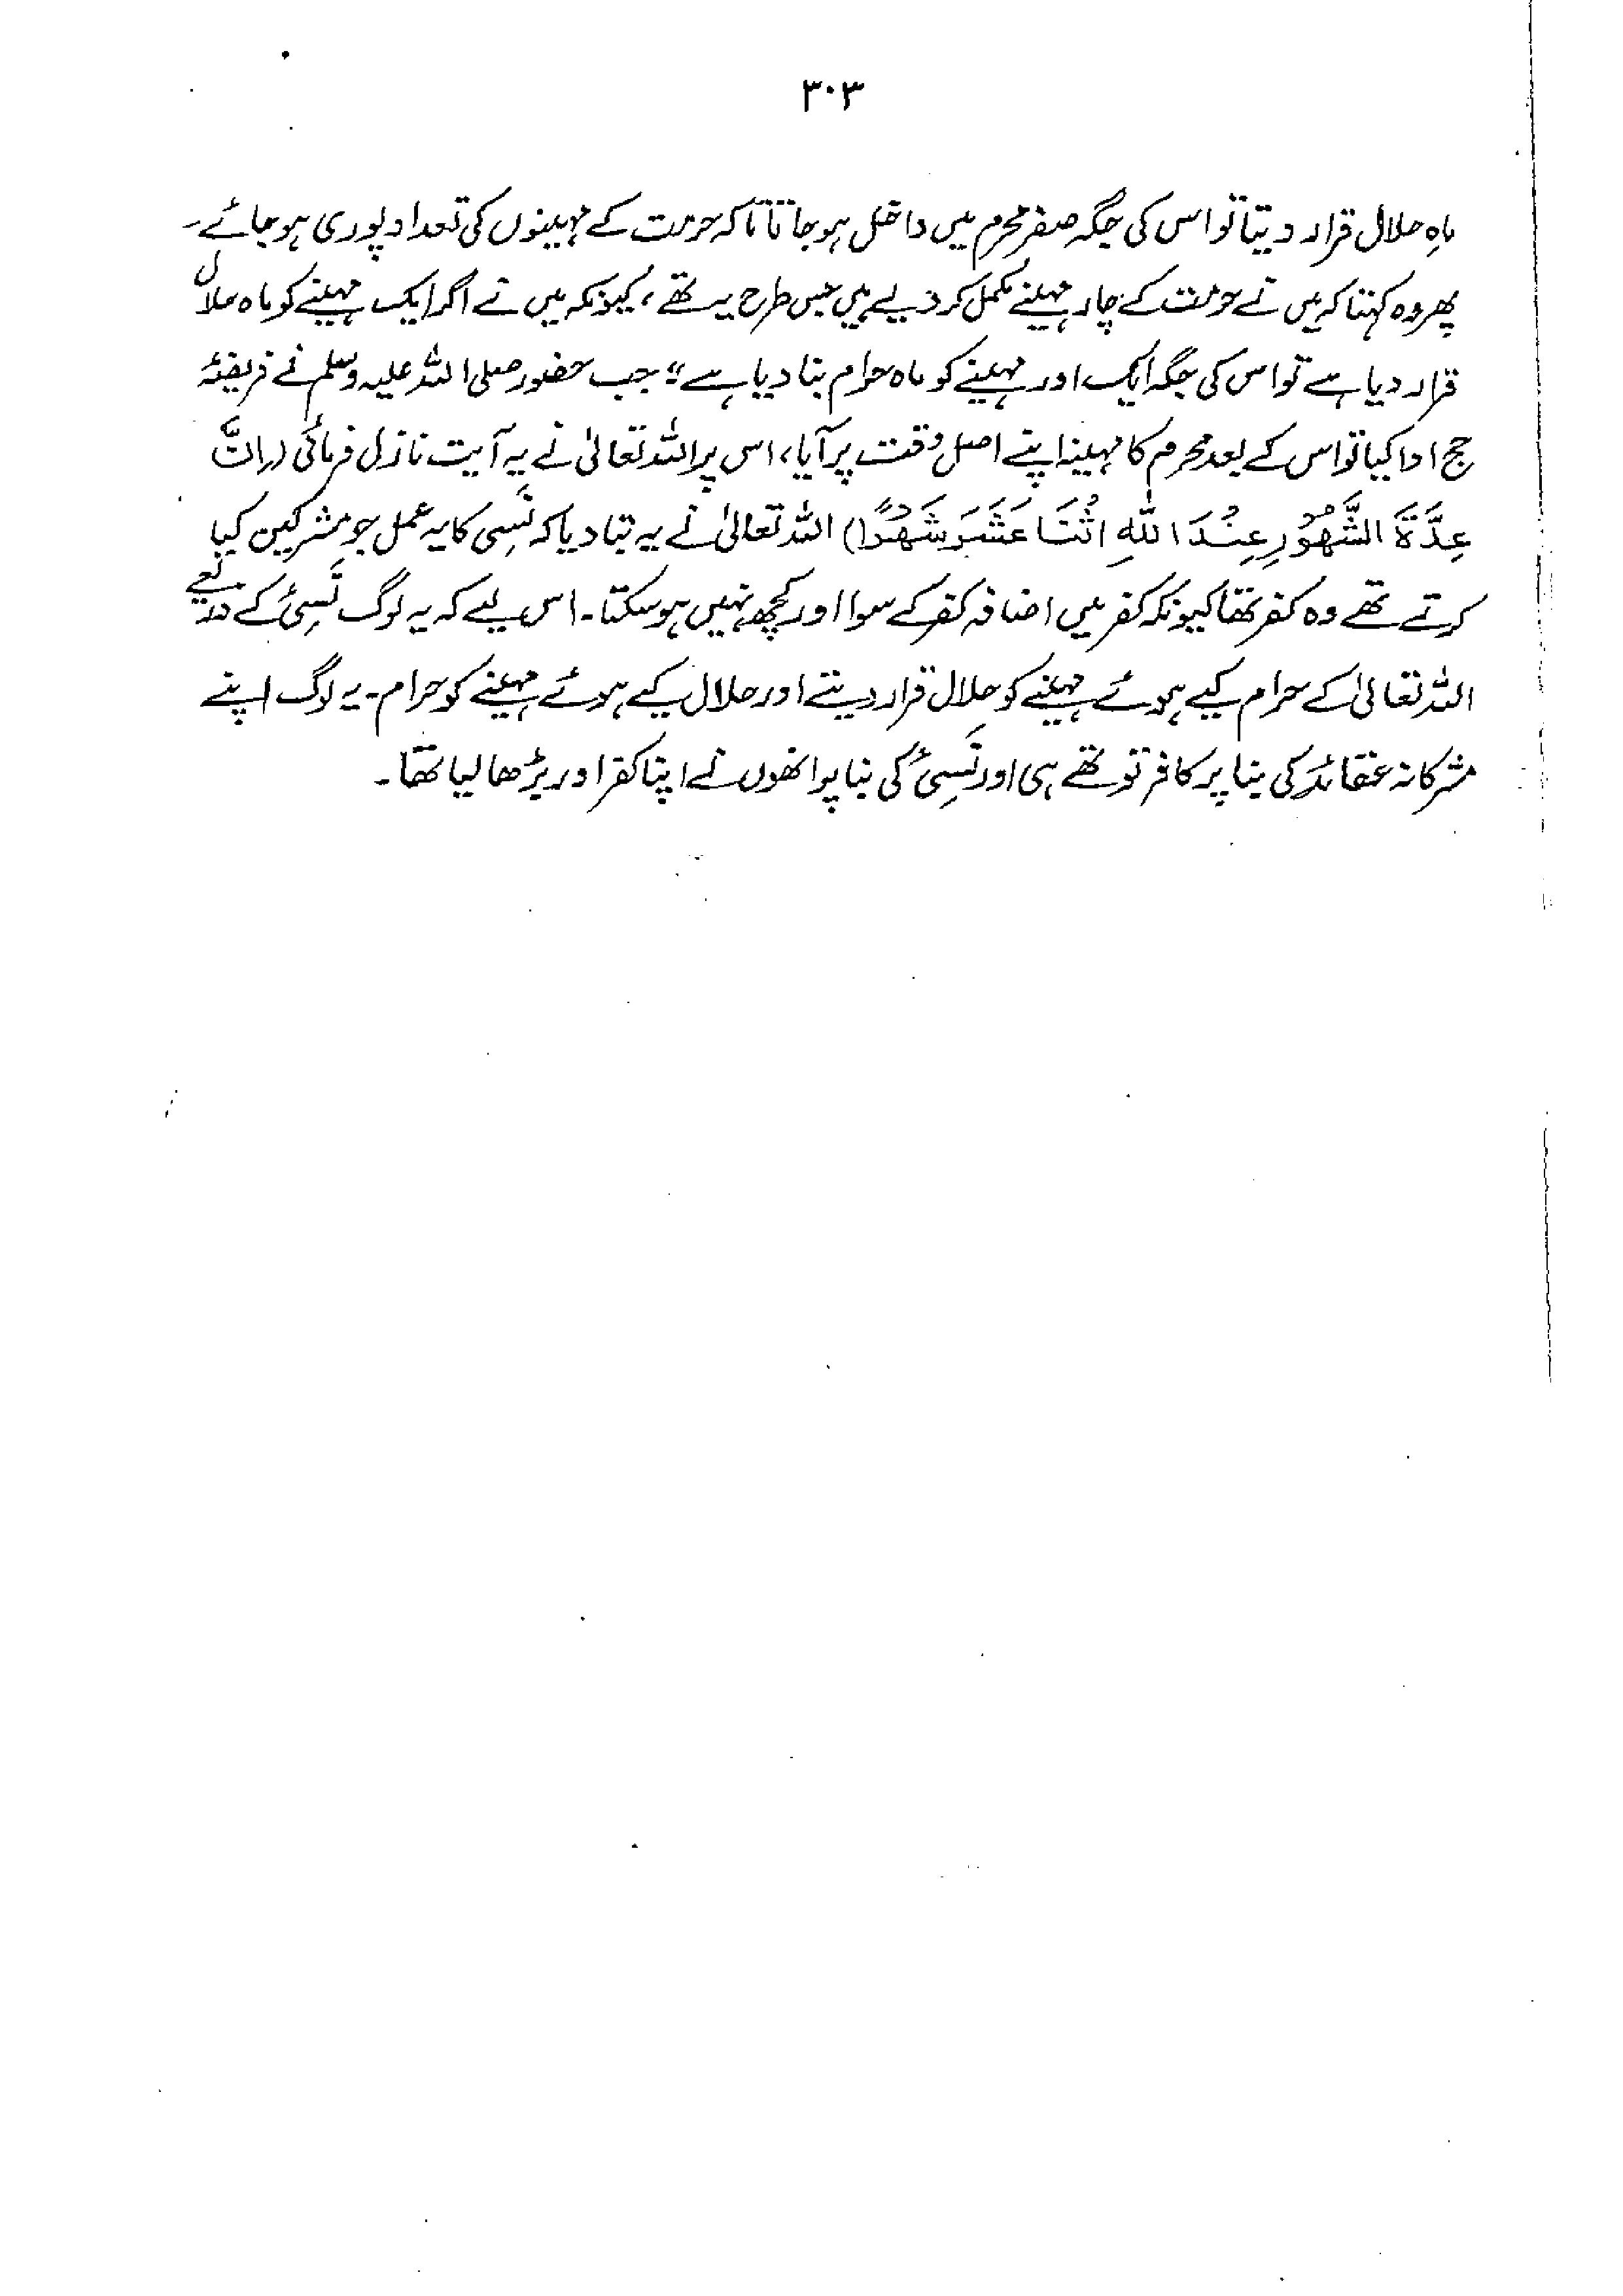 ۳۰۳
ماہِ حلال قرار دیتا تو اس کی جگہ صفر محرم میں داخل ہو جاتا تاکہ حرمت کے مہینوں کی تعداد پوری ہو جائے۔
پھر وہ کہتا کہ میں نے حرمت کے چار مہینے مکمل کر دیے ہیں جس طرح یہ تھے، کیونکہ میں نے اگر ایک مہینے کو ماہ حلال
قرار دیا ہے تو اس کی جگہ ایک اور مہینے کو ماہ حرام بنا دیا ہے" جب حضور صلی اللہ علیہ وسلم نے فریضۂ
حج ادا کیا تو اس کے بعد محرم کا مہینہ اپنے اصل وقت پر آیا، اس پر اللہ تعالیٰ نے یہ آیت نازل فرمائی (اِنَّ
عِدَّةَ الشُّهُوْرِ عِنْدَ اللّٰهِ اثْنَا عَشَرَ شَهْرًا) اللہ تعالیٰ نے یہ بتا دیا کہ نَسِی کا یہ عمل جو مشرکین کیا
کرتے تھے وہ کفر تھا کیونکہ کفر میں اضافہ کفر کے سوا اور کچھ نہیں ہو سکتا۔ اس لیے کہ یہ لوگ نَسِیٔ کے ذریعے
اللہ تعالیٰ کے حرام کیے ہوئے مہینے کو حلال قرار دیتے اور حلال کیے ہوئے مہینے کو حرام۔ یہ لوگ اپنے
مشرکانہ عقائد کی بنا پر کافر تو تھے ہی اور نَسِیٔ کی بنا پر انھوں نے اپنا کفر اور بڑھا لیا تھا۔